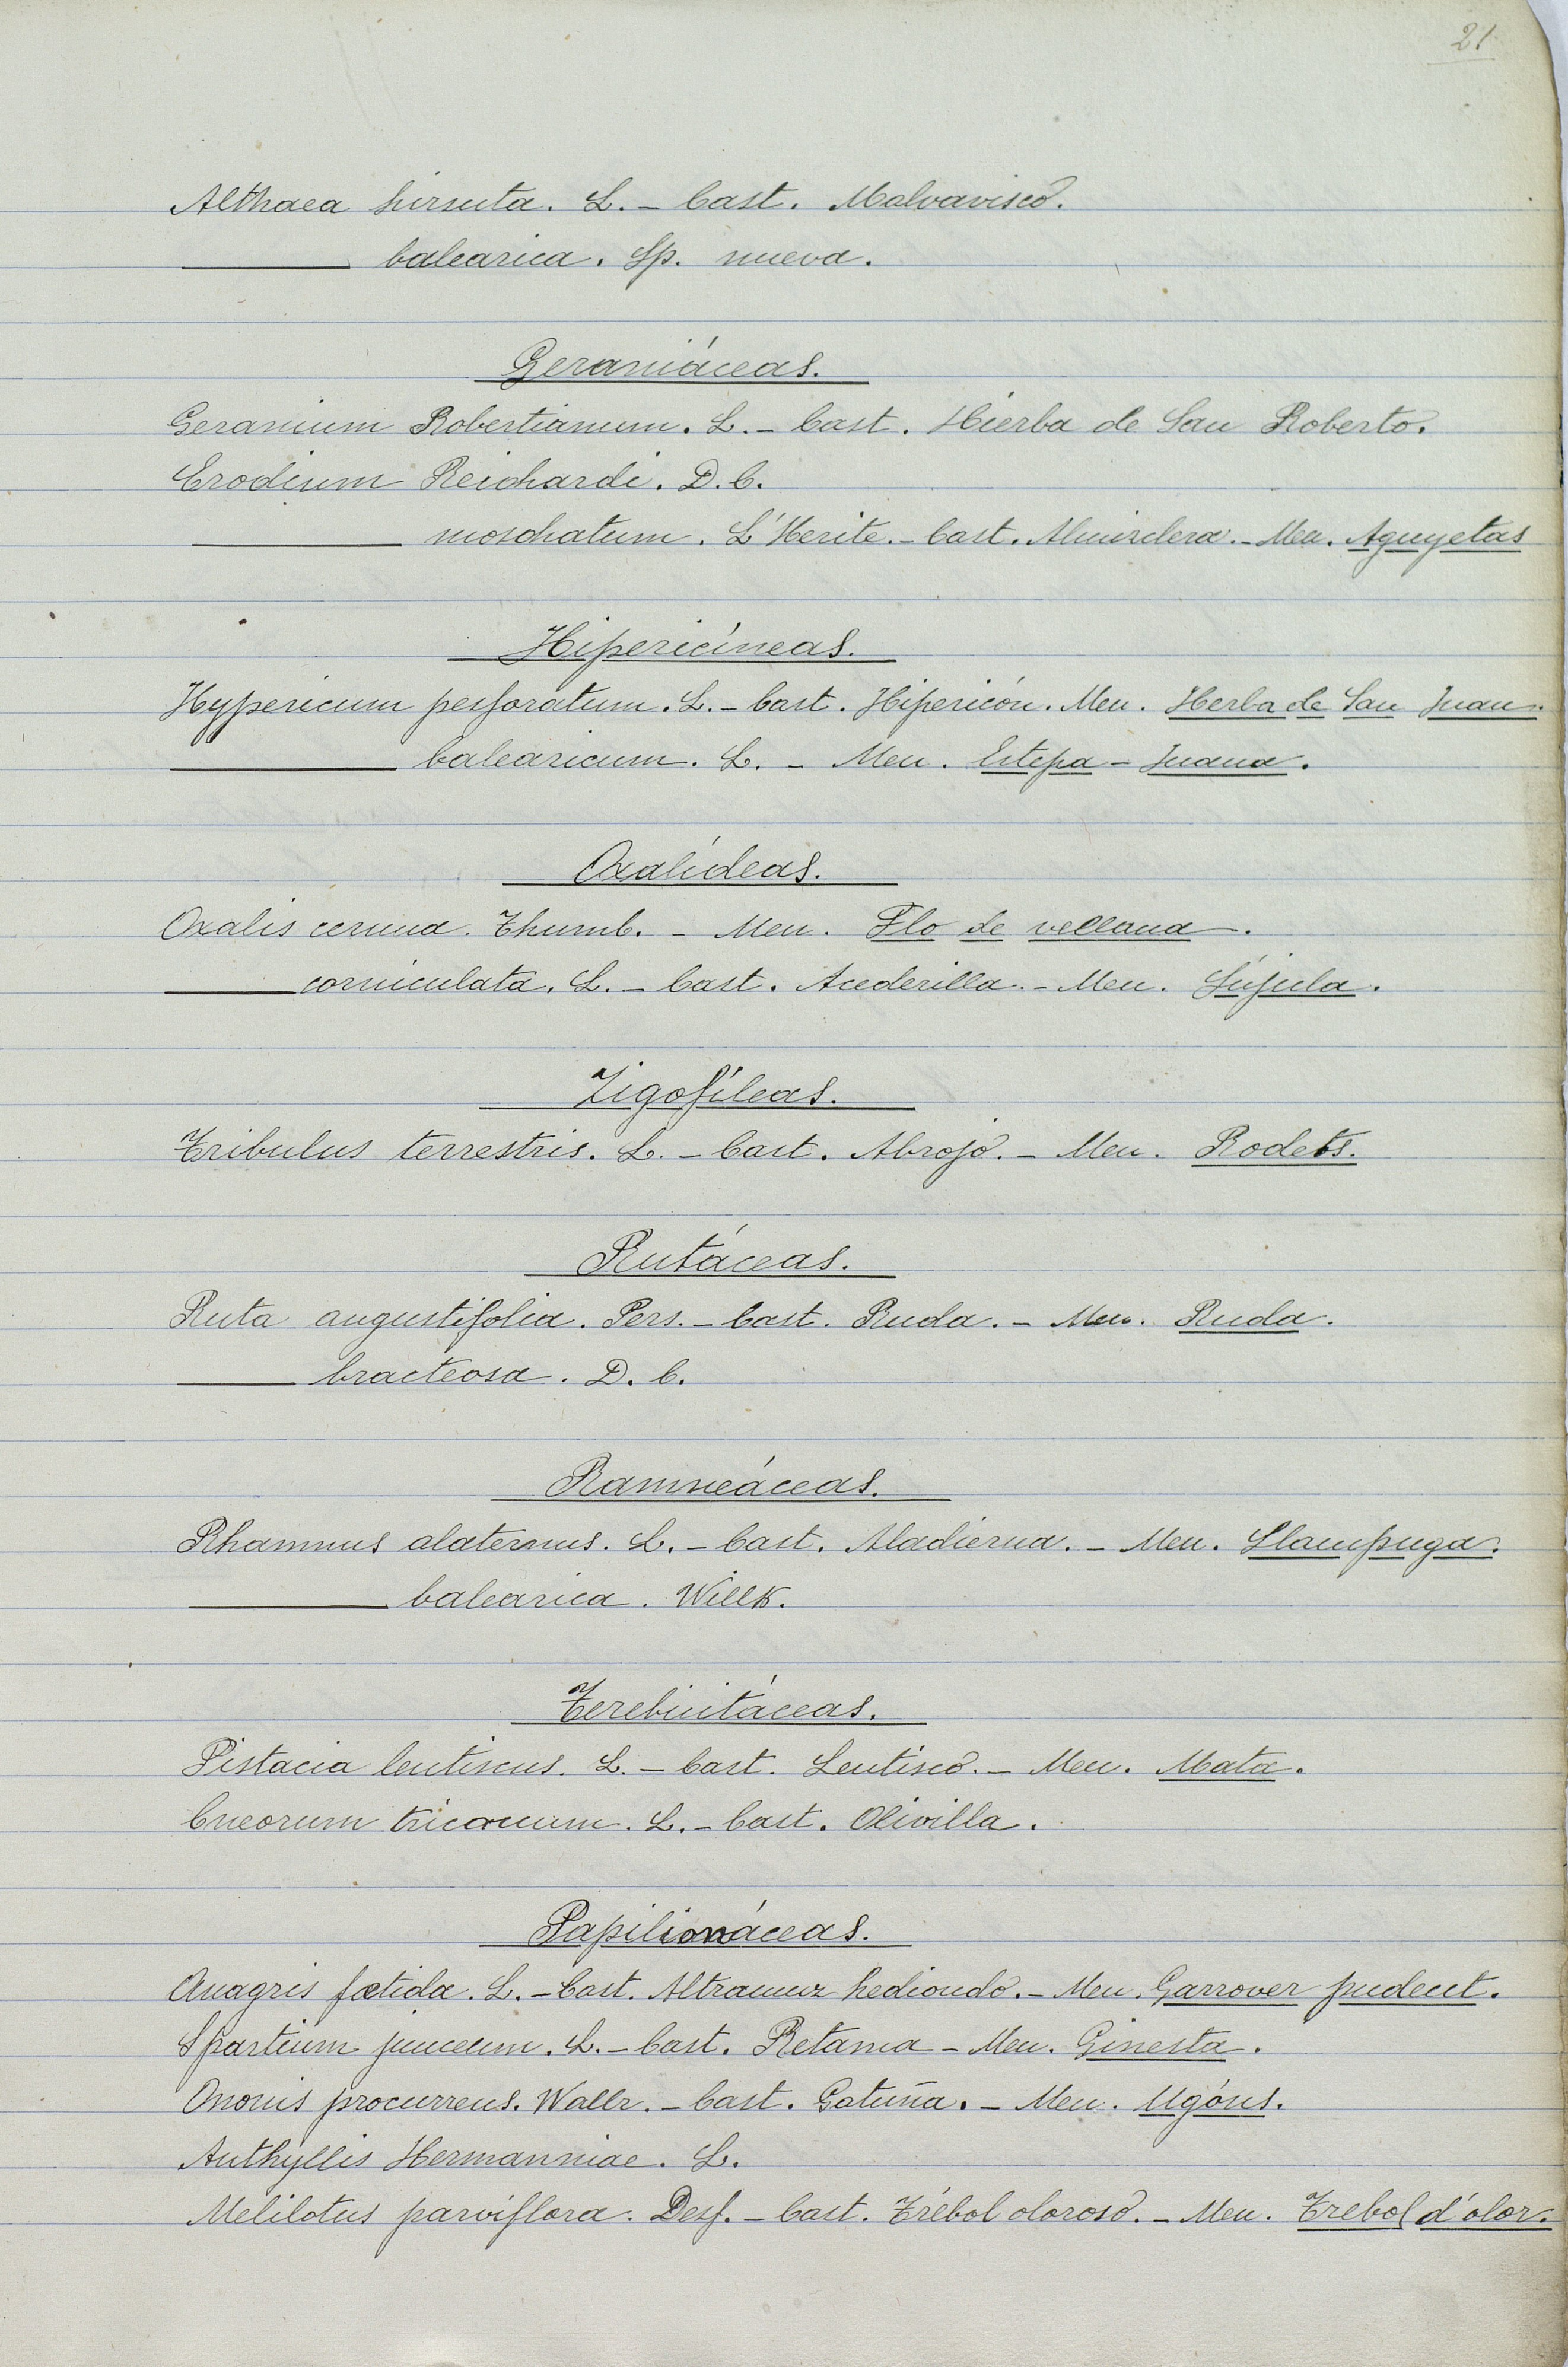 21
Althaea hirsuta. L. - Cast. Malvavisco.
——— balearica. Sp. nueva.
Geraniáceas.
Geranium Robertianum. L. - Cast. Hierba de San Roberto.
Erodium Reichardi. D.C.
——— moschatum. L'Herite. - Cast. Almizclera. - Men. Aguyetas
Hipericíneas.
Hypericum perforatum. L. - Cast. Hipericón. Men. Herba de San Juan.
——— balearicum. L. - Men. Estepa - Juana.
Oxalídeas.
Oxalis cernua. Thumb. - Men. Flo de vellana.
——— corniculata. L. - Cast. Acederilla. - Men. Lújula.
Zigofíleas.
Tribulus terrestris. L. - Cast. Abrojo. - Men. Rodets.
Rutáceas.
Ruta angustifolia. Pers. - Cast. Ruda. - Men. Ruda.
——— bracteosa. D. C.
Ramneáceas.
Rhamnus alaternus. L. - Cast. Aladierna. - Men. Llampuga.
——— balearica. Willk.
Terebintáceas.
Pistacia lentiscus. L. - Cast. Lentisco. - Men. Mata.
Cneorum tricoccum. L. - Cast. Olivilla.
Papilionáceas.
Anagris fœtida. L. - Cast. Altramuz hediondo. - Men. Garrover pudent.
Spartium junceum. L. - Cast. Retama - Men. Ginesta.
Ononis procurrens. Wallr. - Cast. Gatuña. - Men. Ugóns.
Anthyllis Hermanniae. L.
Melilotus parviflora. Desf. - Cast. Trébol oloroso. - Men. Trebol d'olor.